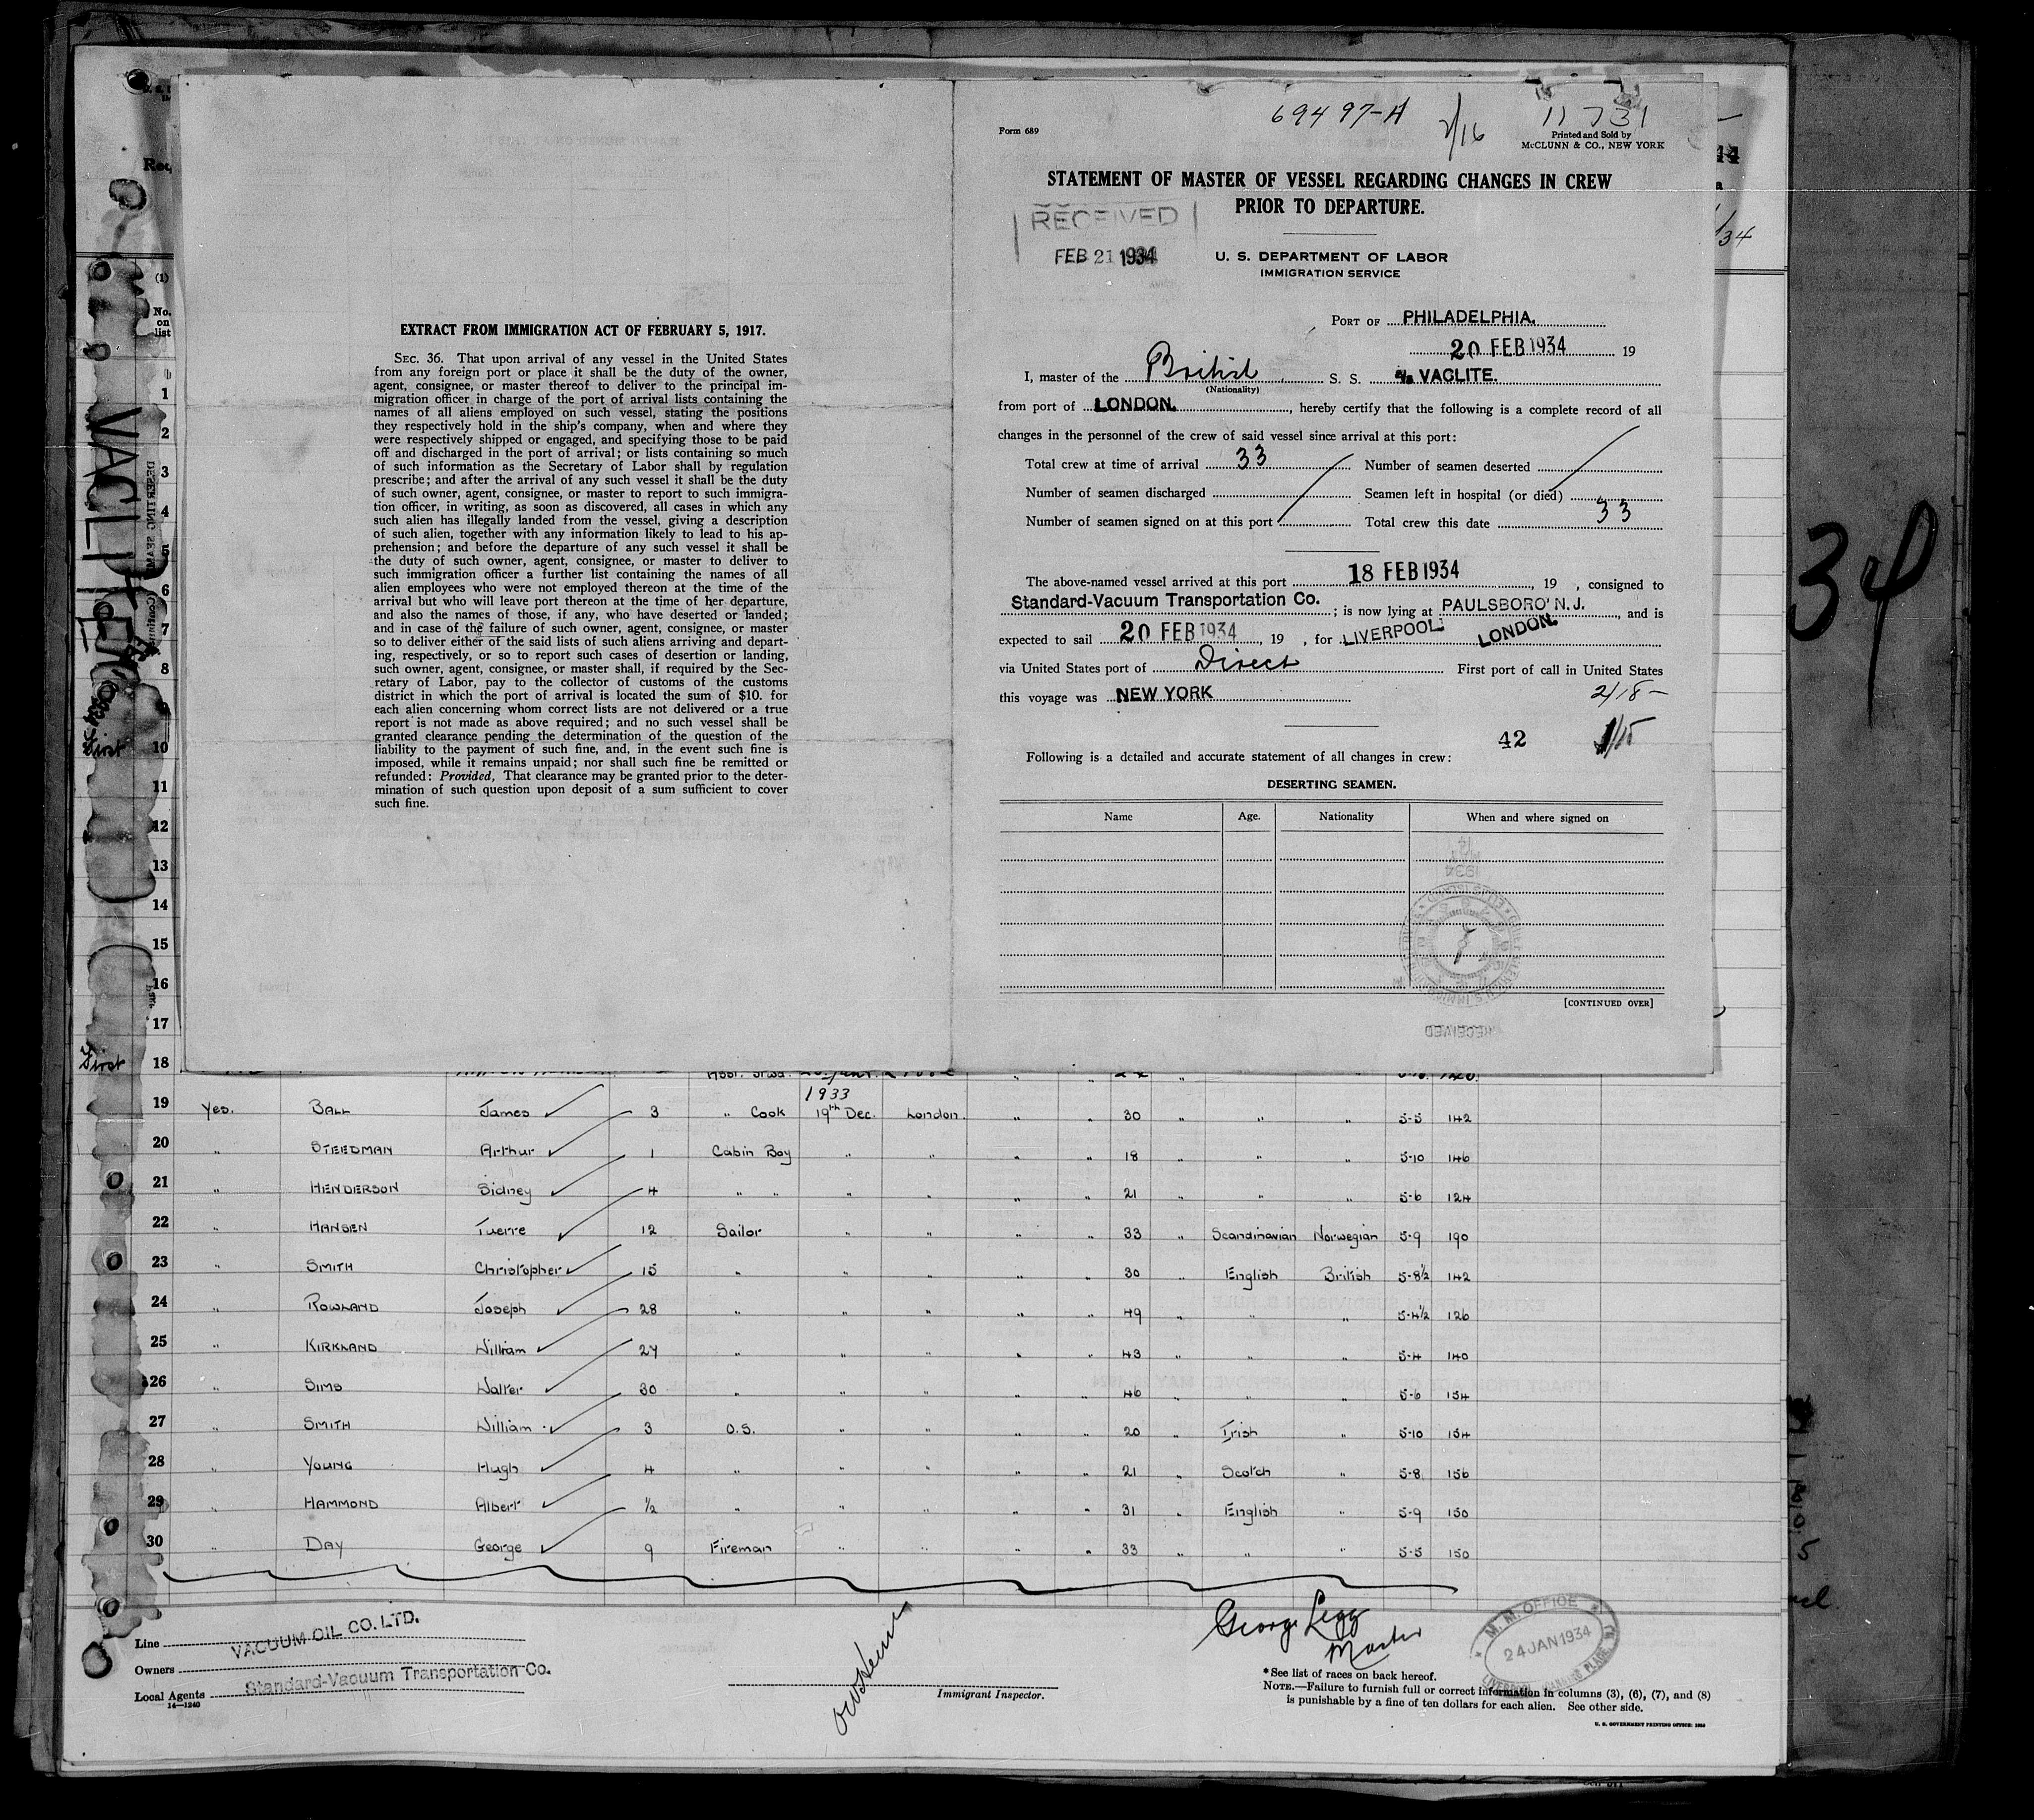 EXTRACT FROM IMMIGRATION ACT OF FEBRUARY 5, 1917.
SEC. 36. That upon arrival of any vessel in the United States
from any foreign port or place it shall be the duty of the owner,
agent, consignee, or master thereof to deliver to the principal im-
migration officer in charge of the port of arrival lists containing the
names of all aliens employed on such vessel, stating the positions
they respectively hold in the ship's company, when and where they
were respectively shipped or engaged, and specifying those to be paid
off and discharged in the port of arrival; or lists containing so much
of such information as the Secretary of Labor shall by regulation
prescribe; and after the arrival of any such vessel it shall be the duty
of such owner, agent, consignee, or master to report to such immigra-
tion officer, in writing, as soon as discovered, all cases in which any
such alien has illegally landed from the vessel, giving a description
of such alien, together with any information likely to lead to his ap-
prehension; and before the departure of any such vessel it shall be
the duty of such owner, agent, consignee, or master to deliver to
such immigration officer a further list containing the names of all
alien employees who were not employed thereon at the time of the
arrival but who will leave port thereon at the time of her departure,
and also the names of those, if any, who have deserted or landed;
and in case of the failure of such owner, agent, consignee, or master
so to deliver either of the said lists of such aliens arriving and depart-
ing, respectively, or so to report such cases of desertion or landing,
such owner, agent, consignee, or master shall, if required by the Sec-
retary of Labor, pay to the collector of customs of the customs
district in which the port of arrival is located the sum of $10. for
each alien concerning whom correct lists are not delivered or a true
report is not made as above required; and no such vessel shall be
granted clearance pending the determination of the question of the
liability to the payment of such fine, and, in the event such fine is
imposed, while it remains unpaid; nor shall such fine be remitted or
refunded: Provided, That clearance may be granted prior to the deter-
mination of such question upon deposit of a sum sufficient to cover
such fine.
69497-A 2/16 11731
Form 689
Printed and Sold by
McCLUNN & CO., NEW YORK
STATEMENT OF MASTER OF VESSEL REGARDING CHANGES IN CREW
PRIOR TO DEPARTURE.
RECEIVED
FEB 21 1934
U. S. DEPARTMENT OF LABOR
IMMIGRATION SERVICE
PORT OF PHILADELPHIA.
20 FEB 1934 19
I, master of the British S. S. VACLITE.
(Nationality)
from port of LONDON. , hereby certify that the following is a complete record of all
changes in the personnel of the crew of said vessel since arrival at this port:
Total crew at time of arrival 33 Number of seamen deserted
Number of seamen discharged Seamen left in hospital (or died)
Number of seamen signed on at this port Total crew this date 33
The above-named vessel arrived at this port 18 FEB 1934 , 19 , consigned to
Standard-Vacuum Transportation Co. ; is now lying at PAULSBORO' N.J. , and is
expected to sail 20 FEB 1934 , 19 , for LIVERPOOL. LONDON.
via United States port of Direct First port of call in United States
this voyage was NEW YORK 2/18-
42
Following is a detailed and accurate statement of all changes in crew:
DESERTING SEAMEN.
Name Age. Nationality When and where signed on
[CONTINUED OVER]
RECEIVED
34
VACLITE
(1)
No. on list
1
2
3
4
5
6
7
8
9
First 10
11
12
13
14
15
16
17
First 18
1933
19 Yes. BALL James 3 " Cook 19th Dec. London. " " 30 " " " 5-5 142
20 " STEEDMAN Arthur 1 Cabin Boy " " " " 18 " " " 5-10 146
21 " HENDERSON Sidney 4 " " " " " " 21 " " " 5-6 124
22 " HANSEN Tuerre 12 Sailor " " " " 33 " Scandinavian Norwegian 5-9 190
23 " SMITH Christopher 15 " " " " " 30 " English British 5-8½ 142
24 " ROWLAND Joseph 28 " " " " " 49 " " " 5-4½ 126
25 " KIRKLAND William 27 " " " " " 43 " " " 5-4 140
26 " SIMS Walter 30 " " " " " 46 " " " 5-6 154
27 " SMITH William 3 O.S. " " " " 20 " Irish " 5-10 154
28 " YOUNG Hugh 4 " " " " " 21 " Scotch " 5-8 156
29 " HAMMOND Albert ½ " " " " " 31 " English " 5-9 150
30 " DAY George 9 Fireman " " " " 33 " " " 5-5 150
Line VACUUM OIL CO. LTD.
Owners
Local Agents Standard-Vacuum Transportation Co.
14—1240
Immigrant Inspector.
George Legg
Master
M. M. OFFICE
24 JAN 1934
* See list of races on back hereof.
NOTE.—Failure to furnish full or correct information in columns (3), (6), (7), and (8)
is punishable by a fine of ten dollars for each alien. See other side.
U. S. GOVERNMENT PRINTING OFFICE: